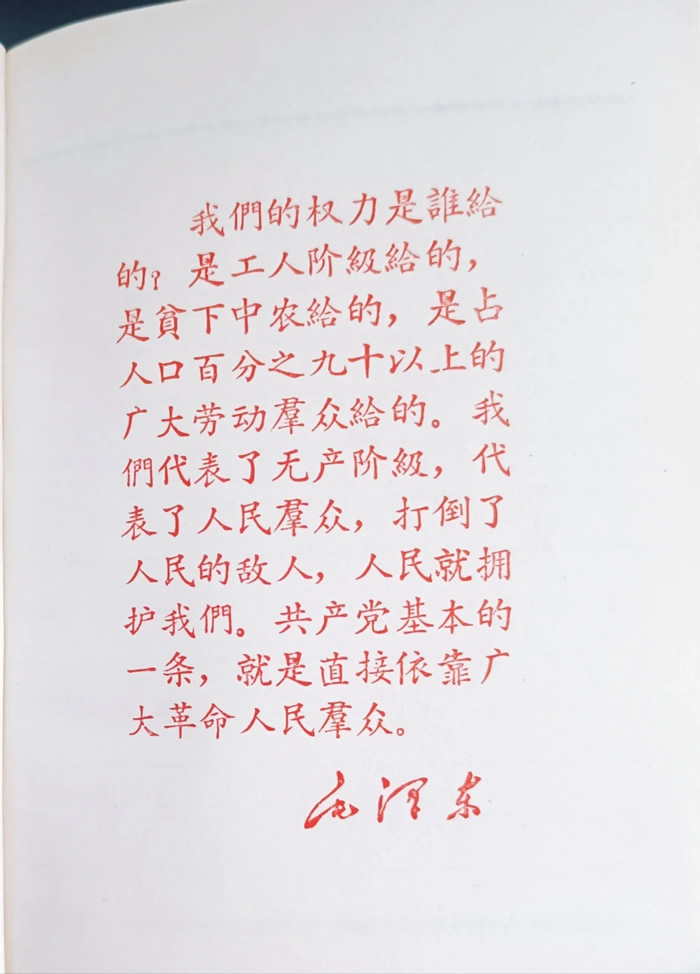 我們的权力是誰給
的？是工人阶級給的，
是貧下中农給的，是占
人口百分之九十以上的
广大劳动羣众給的。我
們代表了无产阶級，代
表了人民羣众，打倒了
人民的敌人，人民就拥
护我們。共产党基本的
一条，就是直接依靠广
大革命人民羣众。
毛泽东